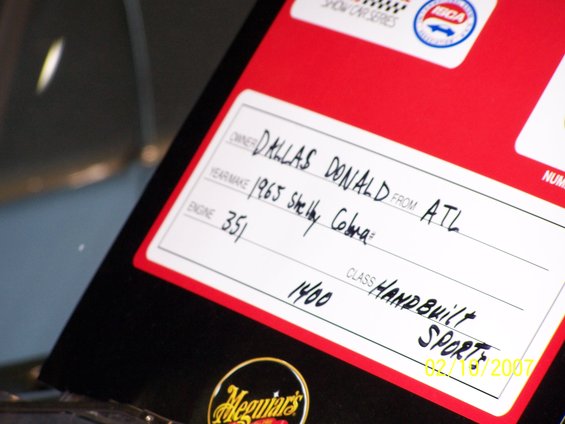 SHOW CAR SERIES
ISCA
OWNER DALLAS DONALD FROM ATL
YEAR/MAKE 1965 Shelby Cobra
ENGINE 351
CLASS HANDBUILT
1400 SPORTS
02/18/2007
Meguiar's